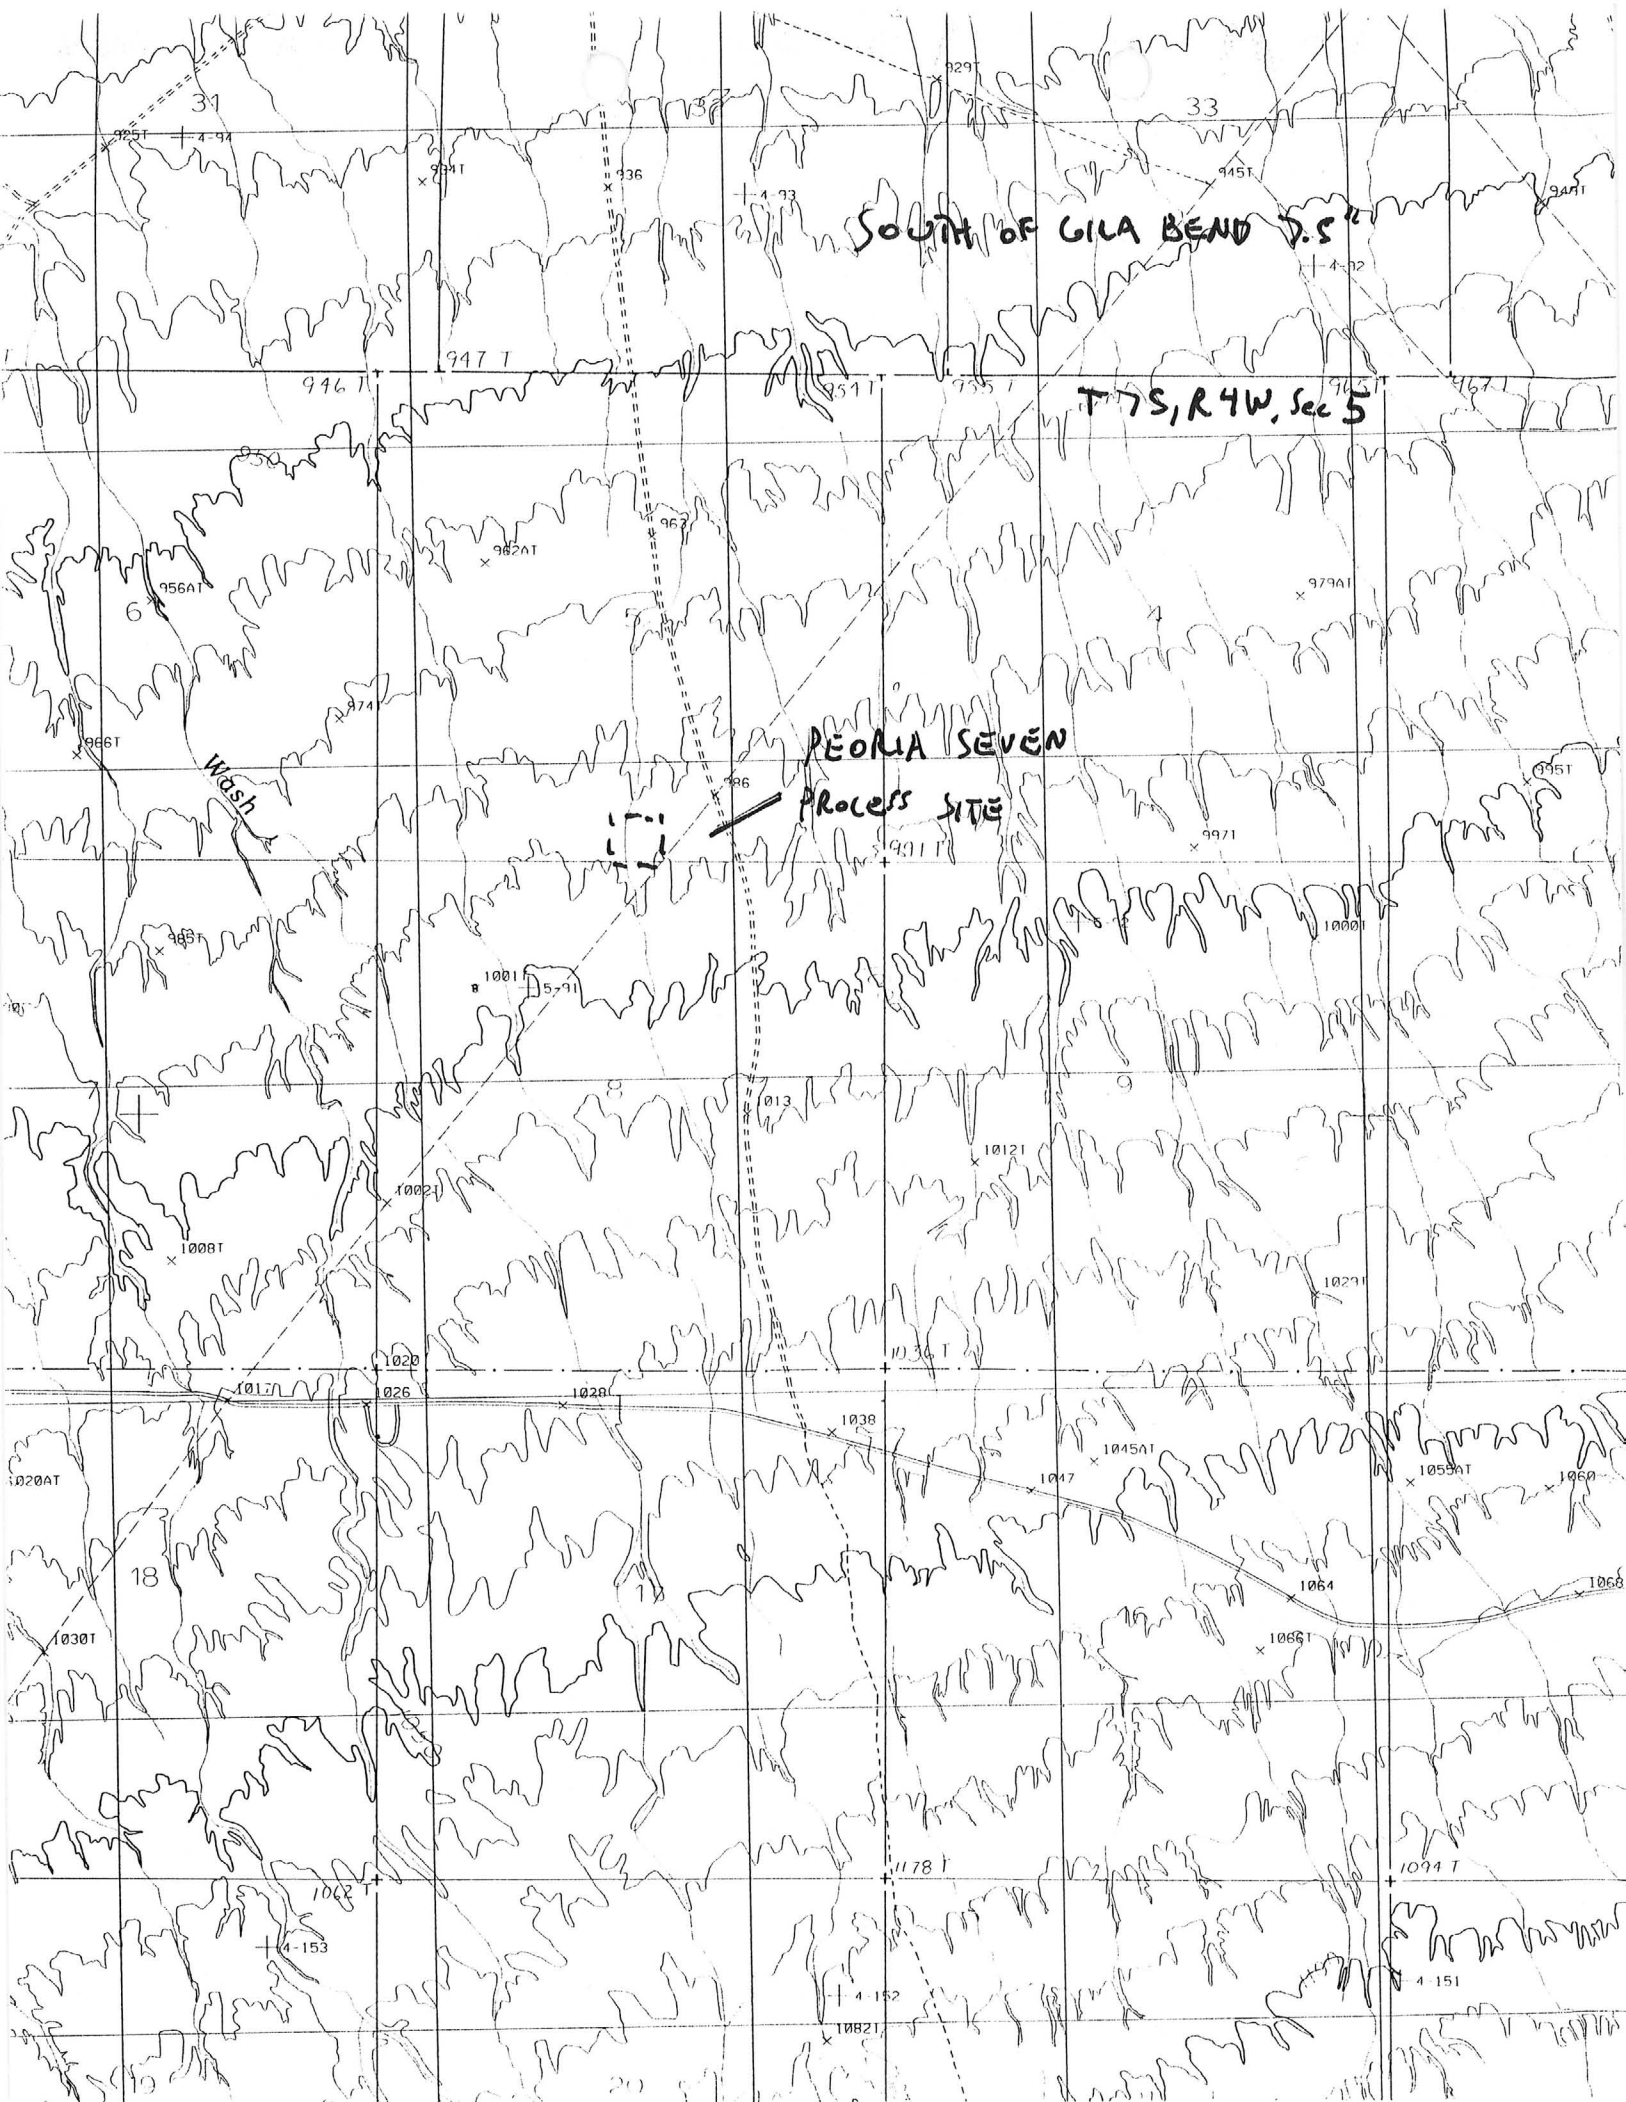 31
32
33
929T
925T
4-94
934T
936
4-93
945T
949T
SOUTH OF GILA BEND 7.5"
4-92
946 T
947 T
954 T
955 T
965 T
967 T
T 7S, R 4W, Sec 5
950
963
962AT
956AT
6
979AT
4
974
966T
Wash
PEORIA SEVEN
986
PROCESS SITE
995T
997T
991 T
985T
1000T
1001T
5-91
8
9
1013
1012T
1002T
1008T
1029T
1020
1036 T
1017
1026
1028
1038
1045AT
1047
1055AT
1060
1020AT
18
17
1064
1068
1030T
1066T
1062 T
1178 T
1094 T
4-153
4-151
4-152
1082T
19
20